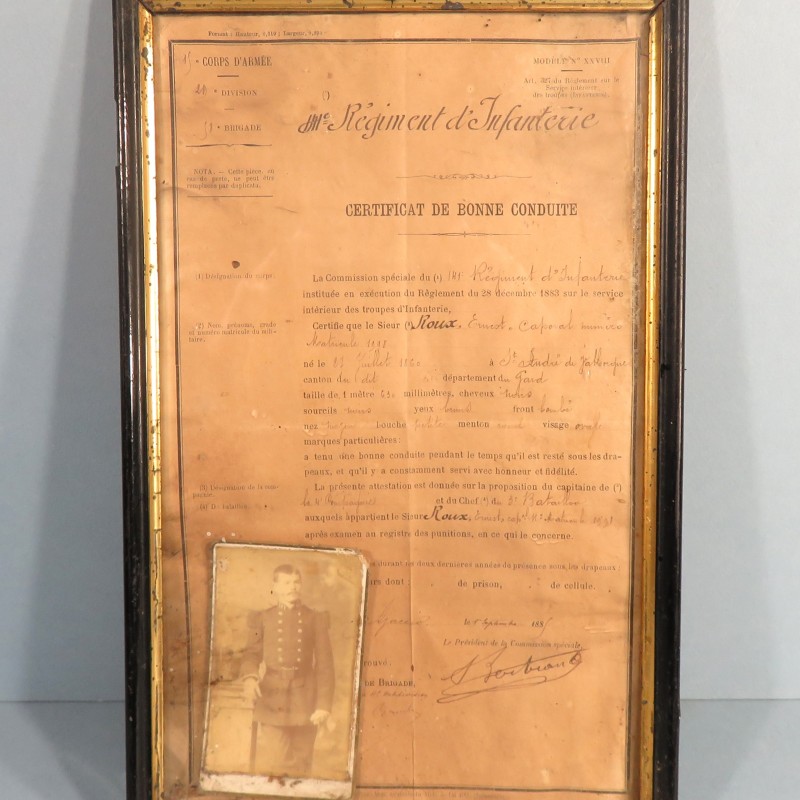 Format : Hauteur, 0,310 ; Largeur, 0,210
15e CORPS D'ARMÉE
DIVISION
BRIGADE
NOTA. — Cette pièce, en
cas de perte, ne peut être
remplacée par duplicata.
MODÈLE No XXVIII
Art. du Règlement sur le
Service intérieur
des troupes d'Infanterie.
141e Régiment d'Infanterie
CERTIFICAT DE BONNE CONDUITE
(1) Désignation du corps.
La Commission spéciale du (1) 141e Régiment d'Infanterie
instituée en exécution du Règlement du 28 décembre 1883 sur le service
intérieur des troupes d'Infanterie,
(2) Nom, prénoms, grade
et numéro matricule du mili-
taire.
Certifie que le Sieur (2) Roux, Ernest, Caporal numéro
Matricule
né le 27 Juillet à St André de
canton du dit département du Gard
taille de 1 mètre 630 millimètres, cheveux noirs
sourcils noirs yeux bruns front bombé
nez moyen bouche petite menton rond visage ovale
marques particulières :
a tenu une bonne conduite pendant le temps qu'il est resté sous les dra-
peaux, et qu'il y a constamment servi avec honneur et fidélité.
(3) Désignation de la com-
pagnie.
(4) Du bataillon
La présente attestation est donnée sur la proposition du capitaine de (3)
la 4e Compagnie et du Chef (4) du 3e Bataillon
auxquels appartient le Sieur Roux, Ernest,
après examen au registre des punitions, en ce qui le concerne.
durant ses deux dernières années de présence sous les drapeaux :
jours dont de prison, de cellule.
Ajaccio le Septembre 188
Le Président de la Commission spéciale,
DE BRIGADE,
Bertrand